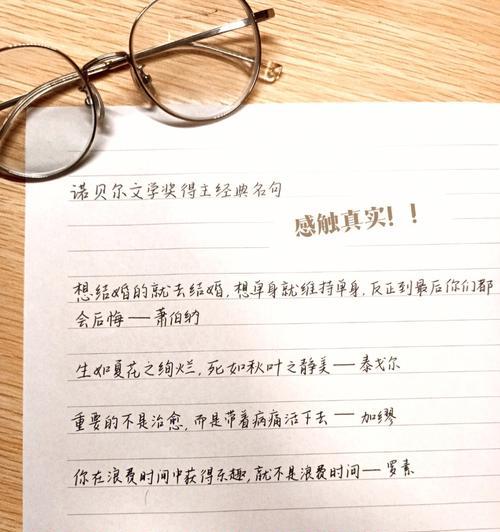 诺贝尔文学奖得主经典名句
感触真实！！
想结婚的就去结婚，想单身就维持单身，反正到最后你们都
会后悔——萧伯纳
生如夏花之绚烂，死如秋叶之静美——泰戈尔
重要的不是治愈，而是带着病痛活下去——加缪
你在浪费时间中获得乐趣，就不是浪费时间——罗素